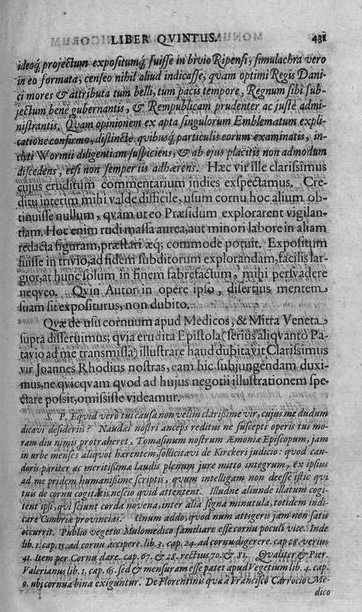 LIBER QVINTUS. 431
ideoq́; projectum expositumq́; fuisse in bivio Ripensi, simulachra vero
in eo formata, censeo nihil aliud indicasse, quam optimi Regis Dani-
ci mores & attributa tum belli, tum pacis tempore, Regnum sibi sub-
jectum bene gubernantis, & Rempublicam prudenter ac juste admi-
nistrantis. Quam opinionem ex apta singulorum Emblematum expli-
catione confirmo, distincte quibusq́; particulis eorum examinatis, in-
clyti Wormii diligentiam suspiciens, & ab ejus placitis non admodum
discedens, etsi non semper iis adhærens. Hæc vir ille clarissimus
cujus eruditum commentarium indies exspectamus. Cre-
ditu interim mihi valde difficile, usum cornu hoc alium ob-
tinuisse nullum, quam ut eo Præsidum explorarent vigilan-
tiam. Hoc enim rudi massa aurea, aut minori labore in aliam
redacta figuram, præstari æq; commode potuit. Expositum
fuisse in trivio, ad fidem subditorum explorandam, facilis lar-
gior, at hunc solum in finem fabrefactum, mihi persvadere
neqveo. Qvin Autor in opere ipso, disertius mentem
suam sit expositurus, non dubito.
Qvæ de usu cornuum apud Medicos, & Mitra Veneta
supra disseruimus; qvia erudita Epistola (serius aliqvanto Pa-
tavio ad me transmissa) illustrare haud dubitavit Clarissimus
vir Joannes Rhodius nostras, eam hic subjungendam duxi-
mus, ne quicqvam quod ad hujus negotii illustrationem spe-
ctare possit, omisisse videamur.
S. P. Eqvid vero tui causa non velim clarissime vir, cujus me dudum
dicavi desideriis? Naudæi nostri anceps reditus ne suscepti operis tui mo-
ram diu nimis protraheret, Tomasinum nostrum Æmoniæ Episcopum, jam
in urbe menses aliquot hærentem, sollicitavi de Kirckeri judicio: quod can-
doris pariter ac meritissima laudis plenum jure mitto integrum, ex ipsius
ad me pridem humanissime scriptis, quum intelligam non deesse istic qui
tuis de cornu cogitatis nescio quid attentent. Illudne aliunde illatum cogi-
tent ipsi, qui sciunt corda novena, inter alia signa minutula, totidem indi-
care Cimbriæ provincias. Unum addo, quod num attigeris jam non satis
occurrit. Publio vegetio Mulomedico familiare esse cornu poculi vice. Inde
lib. 1. cap. 15. ad cornu accipere. lib. 3. cap. 24. ad cornu digerere. cap 28. verius
41. item per Cornu dare. cap. 67. & 28. rectius 70. & 81. Qualiter & Pier.
Valerianus lib. 1. cap. 65. sed & mensuram esse patet apud Vegetium lib. 4. cap.
9. ubi cornua bina exiguntur. De Florentinis quæ à Francisco Carrocio Me-
dico